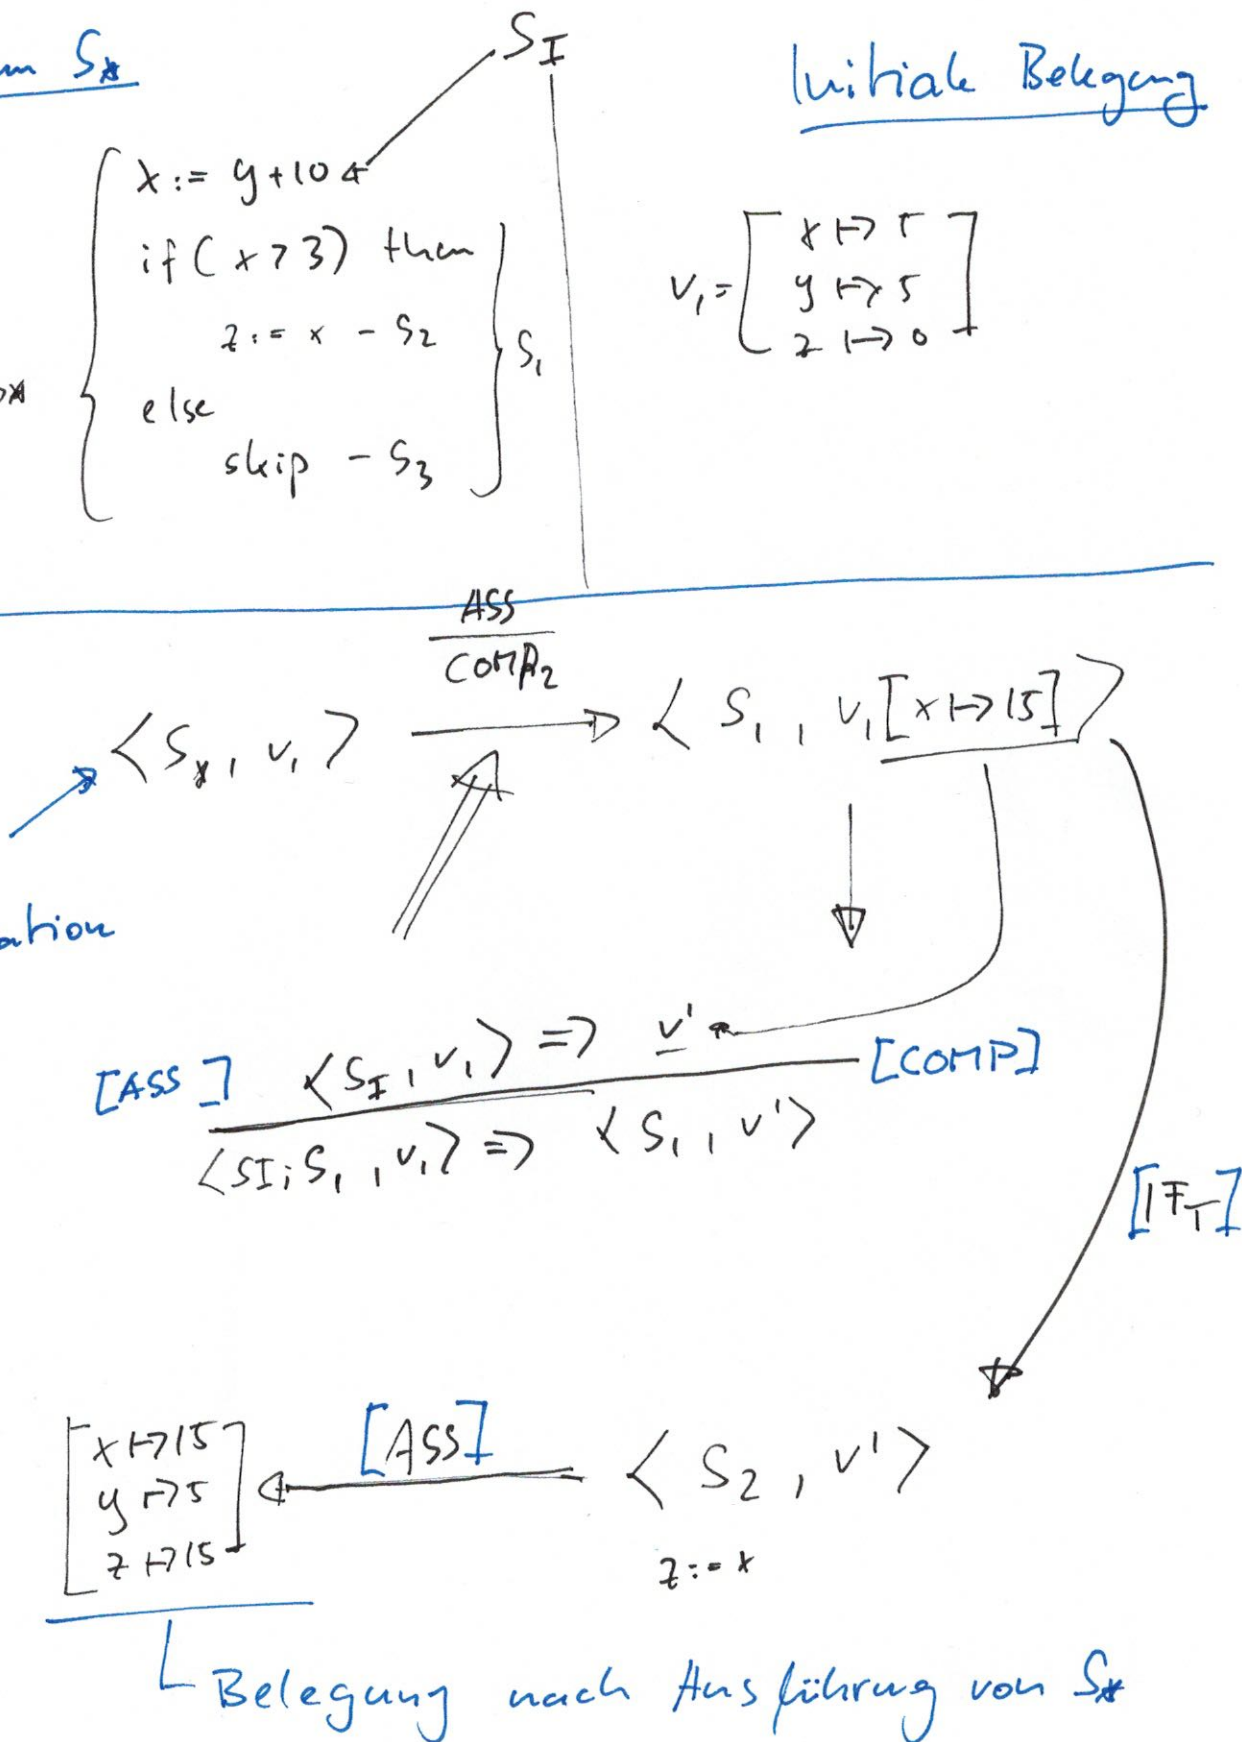 m S*
S_I
Initiale Belegung
x := y+10
if (x>3) then
z := x - S2
else
skip - S3
S1
v1 = [ x ↦ 5
y ↦ 5
z ↦ 0 ]
ASS
COMP2
<S*, v1> → < S1, v1[x ↦ 15] >
ation
[ASS] <S_I, v1> => v' [COMP]
<SI; S1, v1> => <S1, v'>
[IF_T]
[ x ↦ 15
y ↦ 5
z ↦ 15 ]
[ASS]
< S2, v' >
z := x
Belegung nach Ausführung von S*